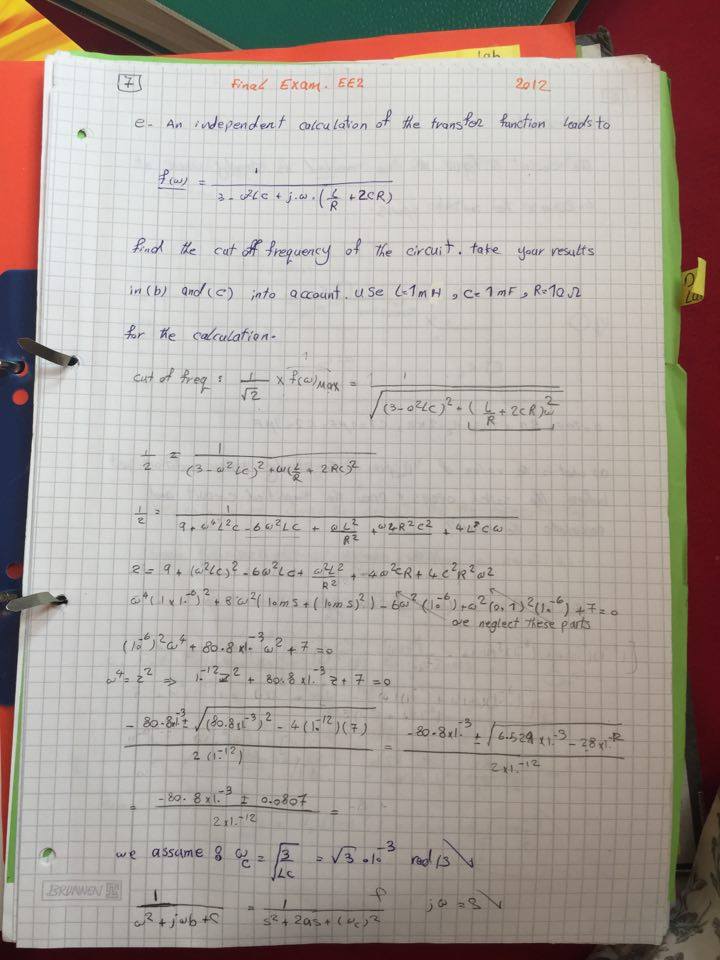 lab
7 Final Exam. EE2 2012
e- An independent calculation of the transfer function leads to
f(ω) = 1 / (3 - ω²LC + j.ω.(L/R + 2CR))
find the cut off frequency of the circuit. take your results
in (b) and (c) into account. use L=1mH, C=1mF, R=10Ω
for the calculation.
cut of freq: 1/√2 × f(ω)Max = 1 / √((3-ω²LC)² + (L/R + 2CR)²ω)
1/2 = 1 / ((3-ω²LC)² + ω(L/R + 2RC)²)
1/2 = 1 / (9 + ω⁴L²C - 6ω²LC + ωL²/R² + ω4R²C² + 4L²Cω)
2 = 9 + (ω²LC)² - 6ω²LC + ω²L²/R² + 4ω²CR + 4C²R²ω²
ω⁴(1×10⁻⁶)² + 8ω²(10ms + (10ms)²) - 6ω²(10⁻⁶) + ω²(0,1)²(10⁻⁶) + 7 = 0
we neglect these parts
(10⁻⁶)²ω⁴ + 80.8×10⁻³ω² + 7 = 0
ω⁴ = z² ⇒ 10⁻¹²z² + 80.8×10⁻³z + 7 = 0
(-80.8×10⁻³ ± √((80.8×10⁻³)² - 4(10⁻¹²)(7))) / 2(10⁻¹²) = (-80.8×10⁻³ ± √(6.529×10⁻³ - 28×10⁻¹²)) / 2×10⁻¹²
= (-80.8×10⁻³ ± 0.0807) / 2×10⁻¹² =
we assume: ωc = √(3/LC) = √3 · 10⁻³ rad/s
1 / (ω² + jωb + C) = 1 / (s² + 2as + (ωc)²) jω = s
BRUNNEN